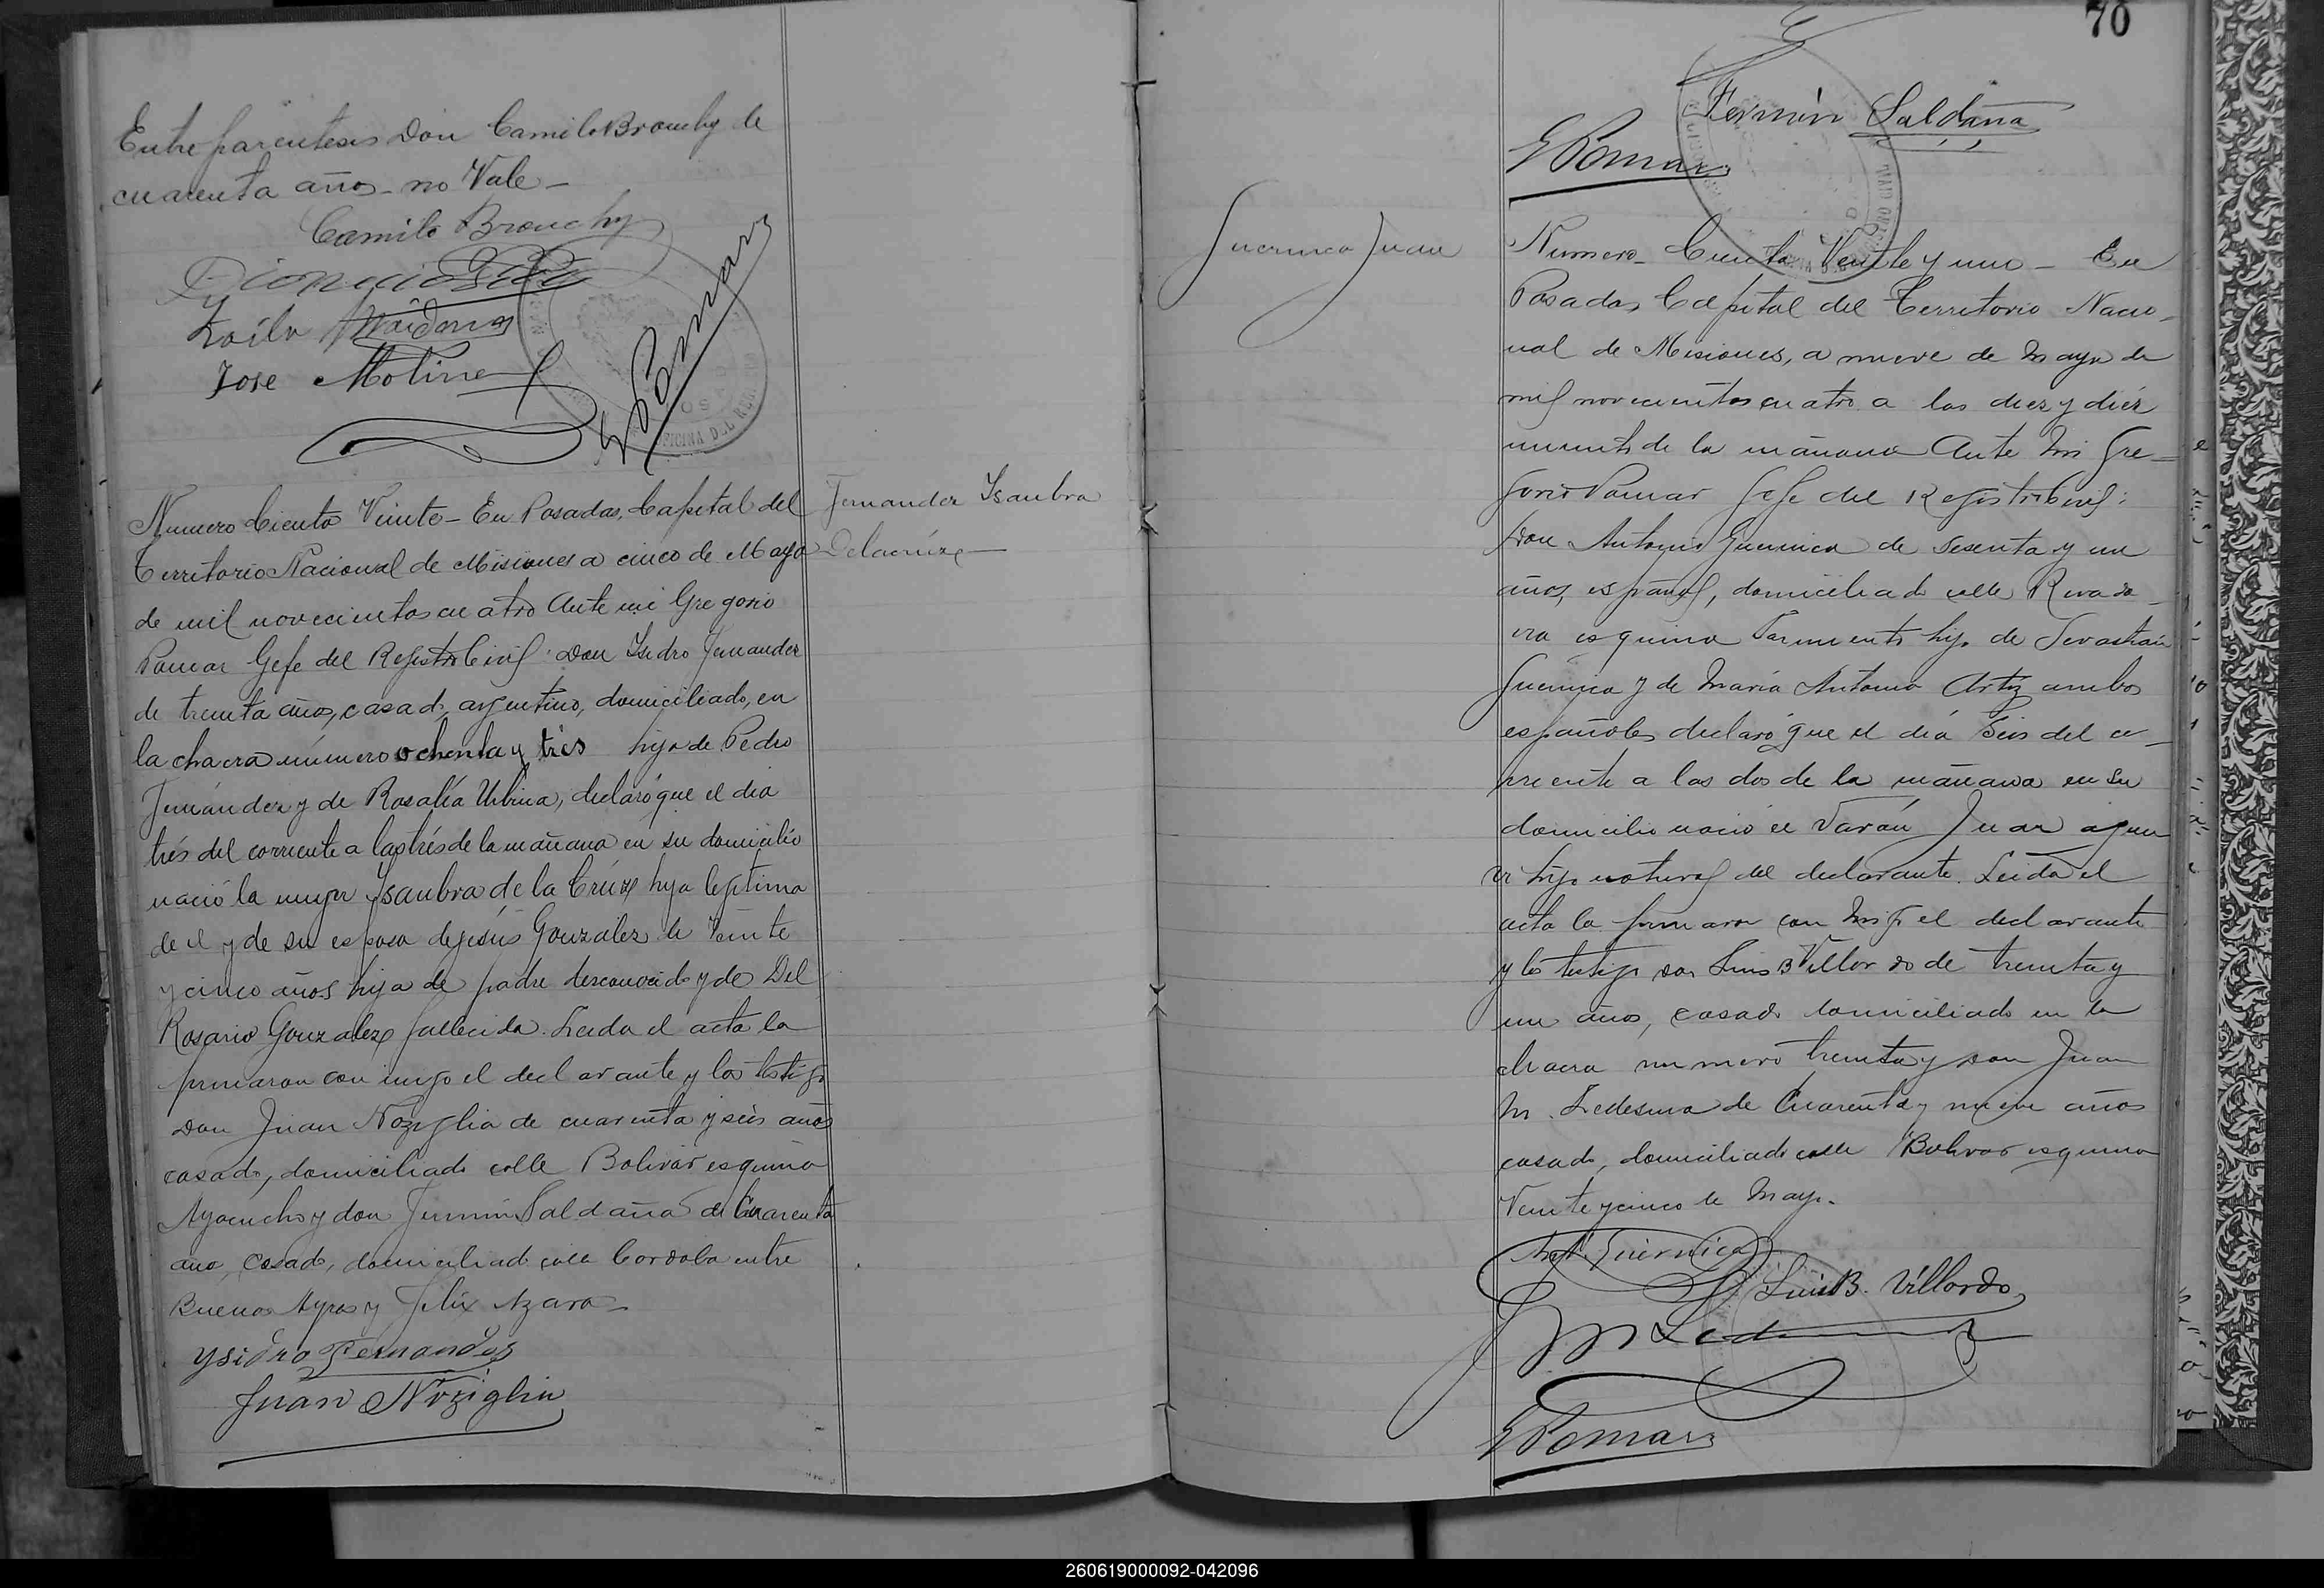 Entre parentesis Don Camilo Brouchy de
cuarenta años - no Vale -
Camilo Brouchy
Zoilo
Jose Molina
GPomar
Numero Ciento Veinte - En Posadas, Capital del
Territorio Nacional de Misiones a cinco de Mayo
de mil novecientos cuatro Ante mi Gregorio
Pomar Gefe del Registro Civil: Don Isidro Fernandez
de treinta años, casado, argentino, domiciliado, en
la chacra número ochenta y tres hijo de Pedro
Fernández y de Rosalía Urbina, declaró que el dia
trés del corriente a las trés de la mañana en su domicilio
nació la mujer Ysaubra de la Crúz hija legitima
de él y de su esposa de Jesús Gonzalez de Veinte
y cinco años hija de padre desconocido y de Del
Rosario Gonzalez fallecida. Leida el acta la
firmaron con migo el declarante y los testigos
Don Juan Noziglia de cuarenta y seis años
casado, domiciliado calle Bolivar esquina
Ayacucho y don Fermin Saldaña de Cuarenta
años, casado, domiciliado calle Cordoba entre
Buenos Ayres y Felix Azara -
Ysidro Fernandez
Juan Noziglia
Fernandez Ysaubra
Delacrúz -
70
Fermín Saldaña
GPomar
Guernica Juan
Numero - Ciento Veinte y uno - En
Posadas, Capital del Territorio Nacio-
nal de Misiones, a nueve de Mayo de
mil novecientos cuatro a las diez y diéz
minutos de la mañana Ante Mi Gre-
gorio Pomar Gefe del Registro Civil:
Don Antonio Guernica de sesenta y un
años, español, domiciliado calle Rivada-
via esquina Sarmiento hijo de Sevastian
Guernica y de María Antonia Artiz ambos
españoles declaró que el día Seis del co-
rriente a las dos de la mañana en su
domicilio nació el Varón Juan a quien
hijo natural del declarante. Leida el
acta la firmaron con migo el declarante
y los testigos don Luis B Villordo de treinta y
un años, casado domiciliado en la
chacra numero treinta y don Juan
M. Ledesma de Cuarenta y nueve años
casado, domiciliado calle Bolivar esquina
Veinte y cinco de Mayo.
Ant. Guernica
Luis B. Villordo
JM Ledesma
GPomar
260619000092-042096